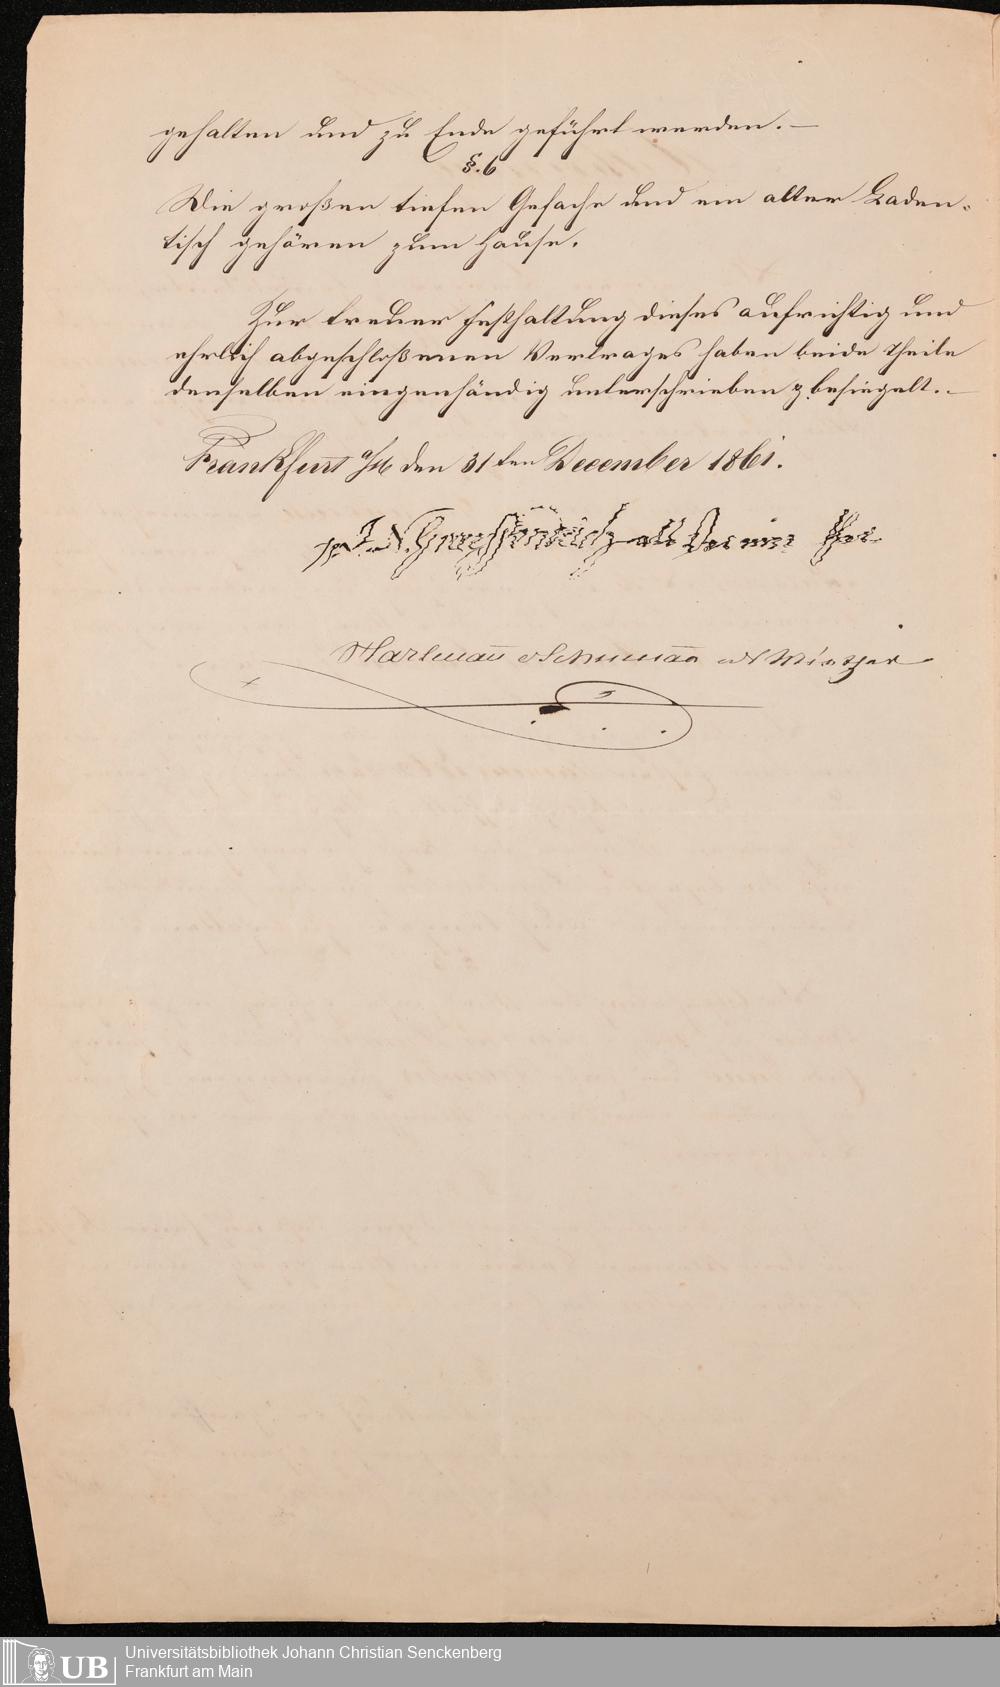 gehalten und zu Ende geführt werden. –
§. 6
Die großen tiefen Gefache und ein alter Laden-
tisch gehören zum Hause.
Zur treuer Festhaltung dieses aufrichtig und
ehrlich abgeschloßenen Vertrages haben beide Theile
denselben eingenhändig unterschrieben & besiegelt. –
Frankfurt a/M den 31ten December 1861.
J. N. als
Hartmann Schumann
Universitätsbibliothek Johann Christian Senckenberg
Frankfurt am Main
UB